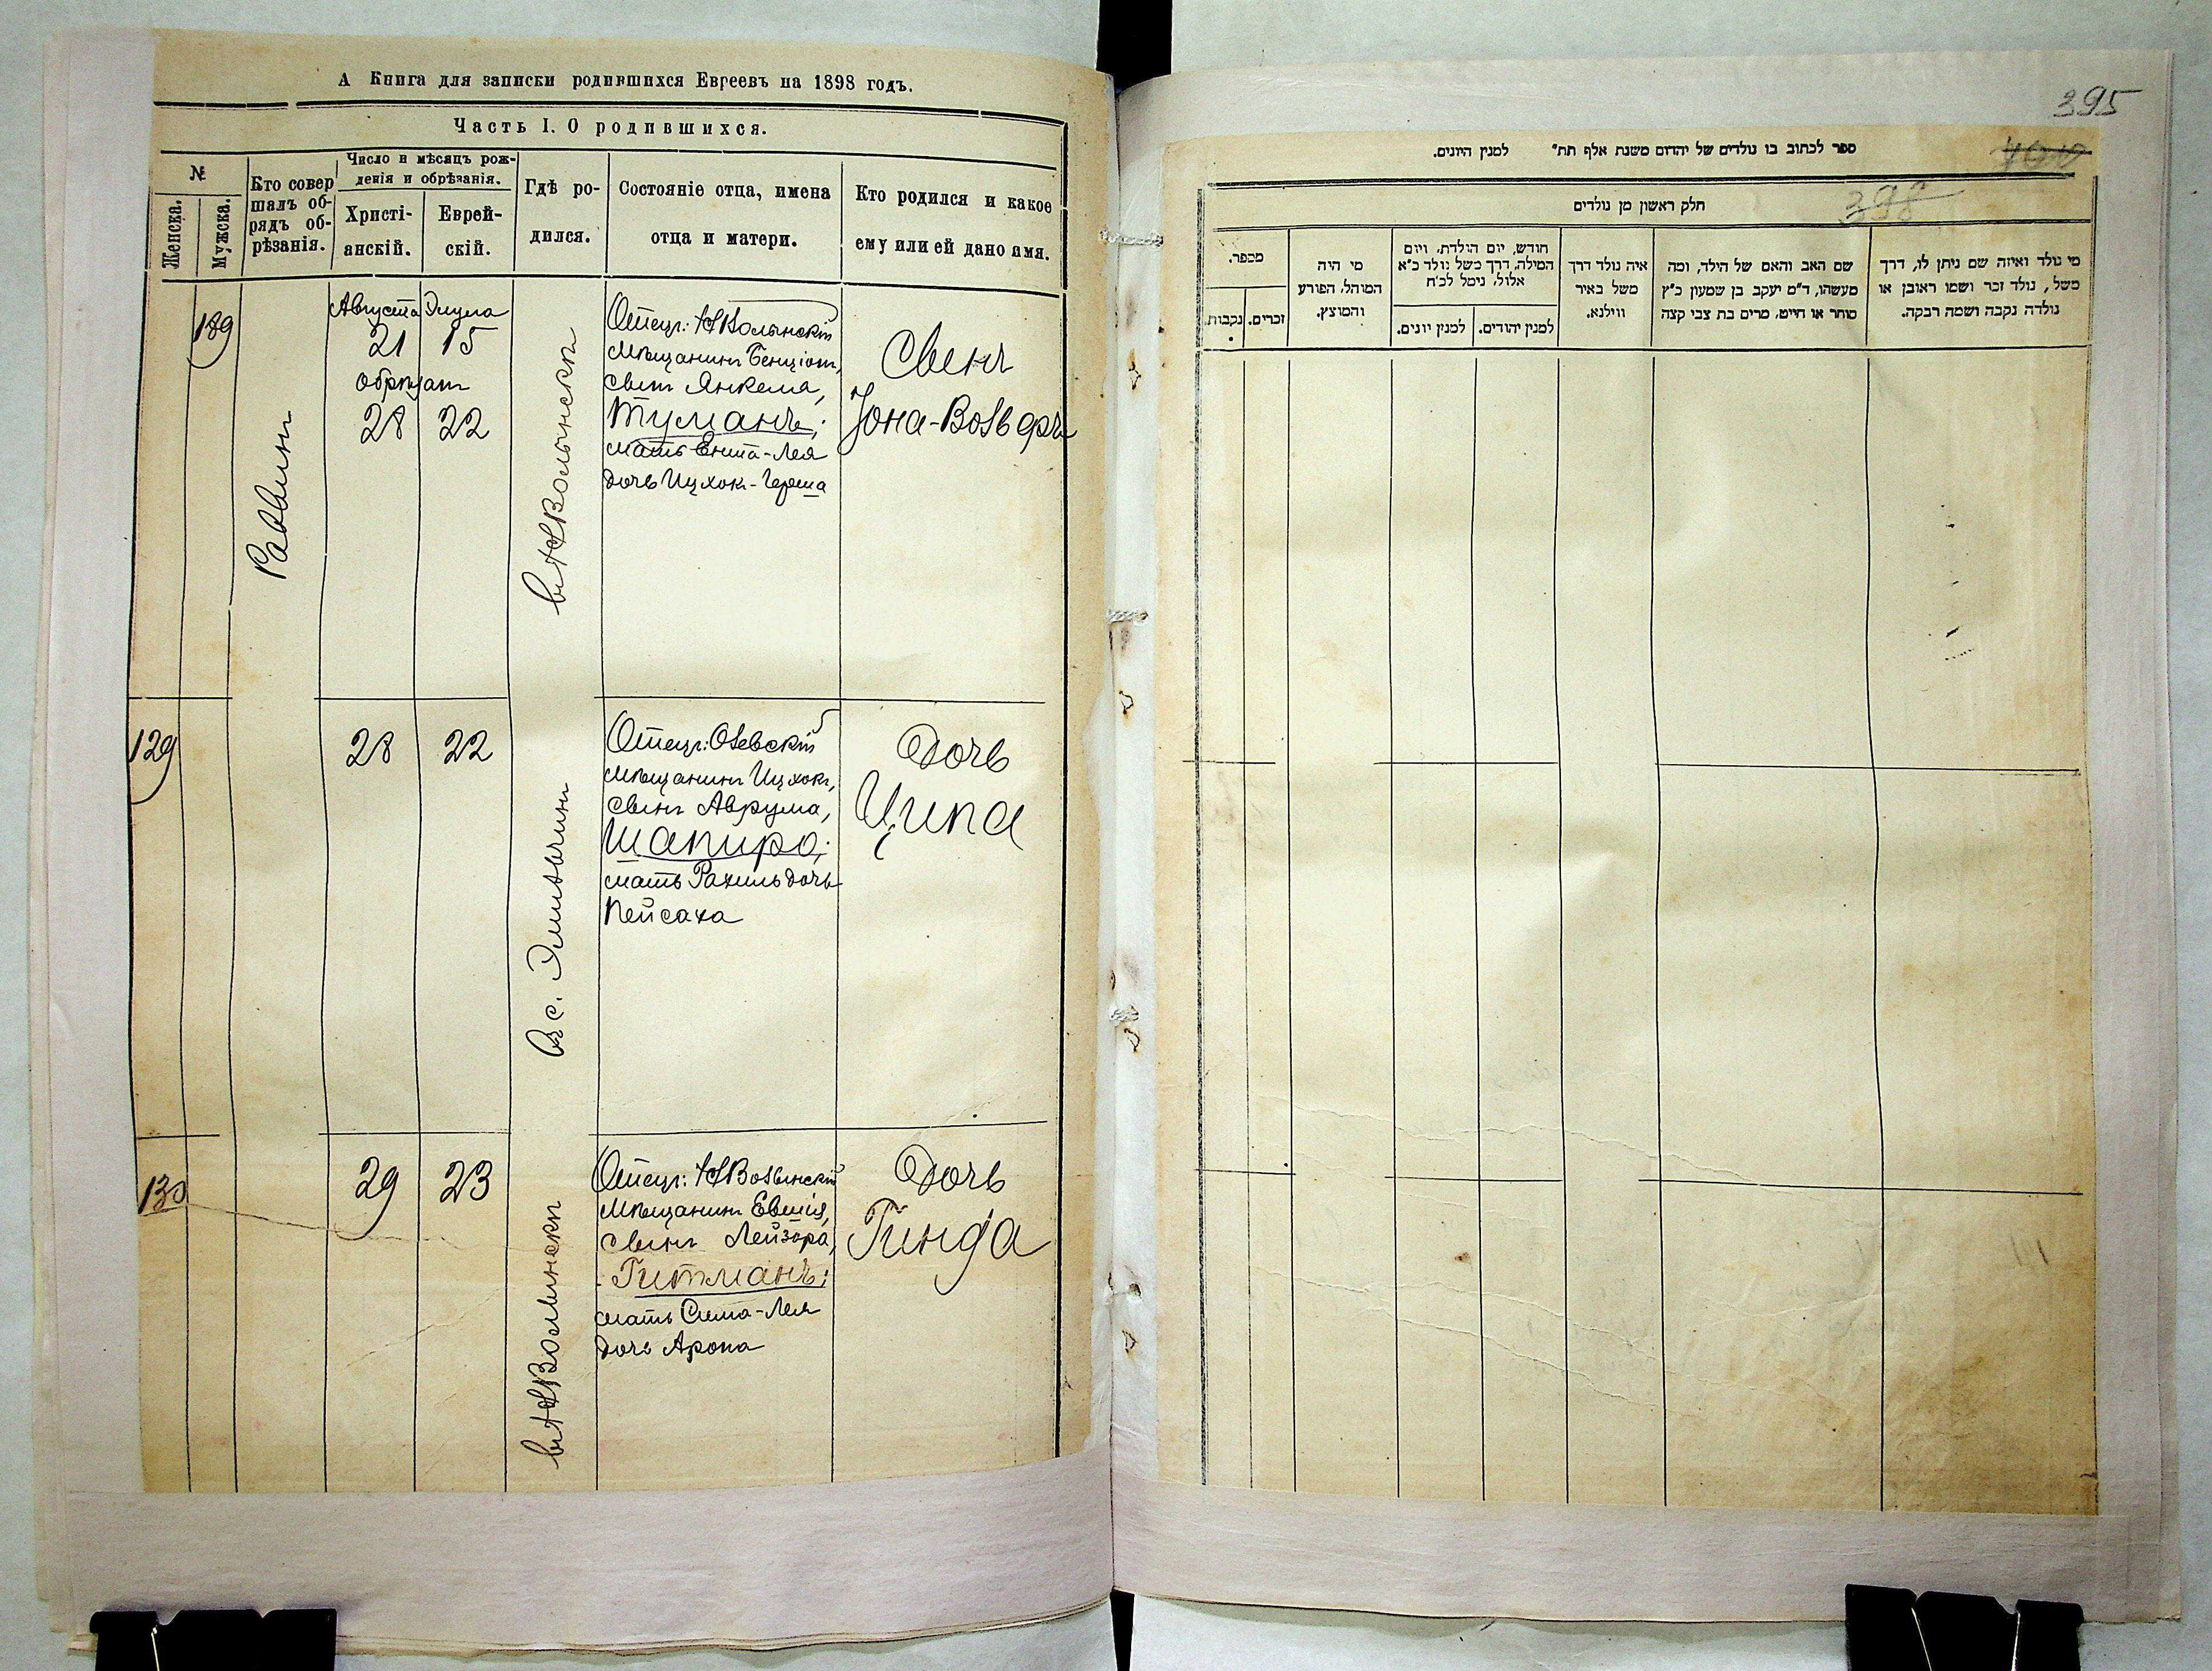 А Книга для записки родившихся Евреевъ на 1898 годъ.
Часть I. О родившихся.
№
Женска.
Мужска.
Кто совер
шалъ об-
рядъ об-
рѣзанія.
Число и мѣсяцъ рож-
денія и обрѣзанія.
Христі-
анскій.
Еврей-
скій.
Гдѣ ро-
дился.
Состояніе отца, имена
отца и матери.
Кто родился и какое
ему или ей дано имя.
189
Раввинъ
Августа Элула
21 15
обрѣзан
28 22
Волынскѣ
Отецъ: Волынскій
мѣщанинъ Бенціон,
сынъ Янкеля,
Туманъ;
мать Ента-Лея
дочь Ицхок-Герша
Сынъ
Іона-Вольфъ
129
28 22
Въ с. Эмильчинѣ
Отецъ: Олевскій
мѣщанинъ Ицхокъ,
сынъ Аврума,
Шапиро;
мать Рахиль дочь
Пейсаха
Дочь
Ципа
130
29 23
Волынскѣ
Отецъ: Волынскій
мѣщанинъ Евшія,
сынъ Лейзора,
Гитманъ;
мать Сима-Лея
дочь Арона
Дочь
Гинда
395
400
398
ספר לכתוב בו נולדים של יהדום משנת אלף תת״ למנין היונים.
חלק ראשון מן נולדים
מספר.
נקבות.
זכרים.
מי היה
המוהל, הפורע
והמוצץ.
חודש, יום הולדת, ויום
המילה, דרך משל נולד כ״א
אלול, נימל לכ״ח
למנין יונים.
למנין יהודים.
איה נולד דרך
משל באיר
ווילנא.
שם האב והאם של הילד, ומה
מעשהו, ד״מ יעקב בן שמעון כ״ץ
סוחר או חייט, מרים בת צבי קצה
מי נולד ואיזה שם ניתן לו, דרך
משל, נולד זכר ושמו ראובן או
נולדה נקבה ושמה רבקה.